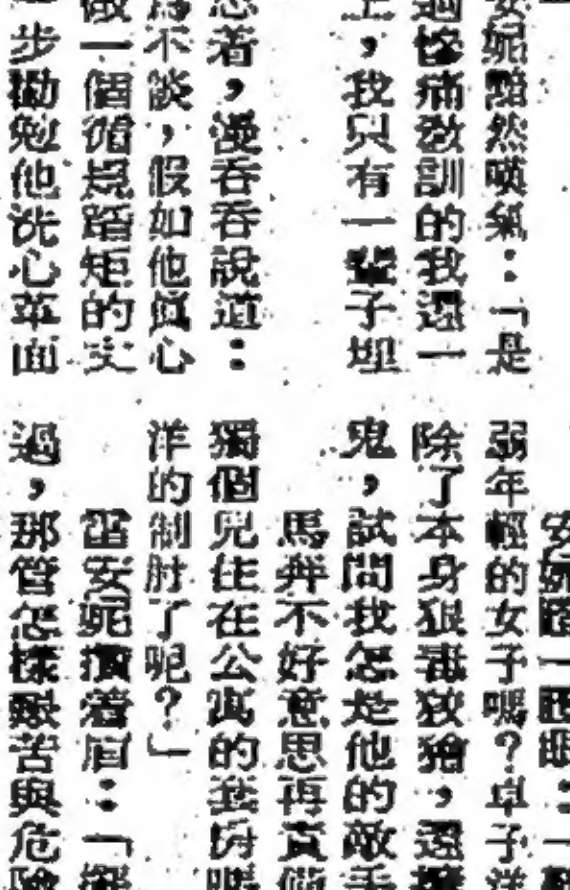 安妮黯然嘆氣：「是
過慘痛教訓的我還一
上，我只有一輩子坦
着，漫吞吞說道：
不談，假如他真心
做一個循規蹈矩的丈
步勸勉他洗心革面
安妮瞪一瞪眼：「
弱年輕的女子嗎？卓子洋
除了本身狠毒狡獪，還擁
鬼，試問我怎是他的敵手
馬不好意思再責備
獨個兒住在公寓的套房嗎
洋的制肘了呢？」
雷安妮攢着眉：「擺
過，那管怎樣艱苦與危險